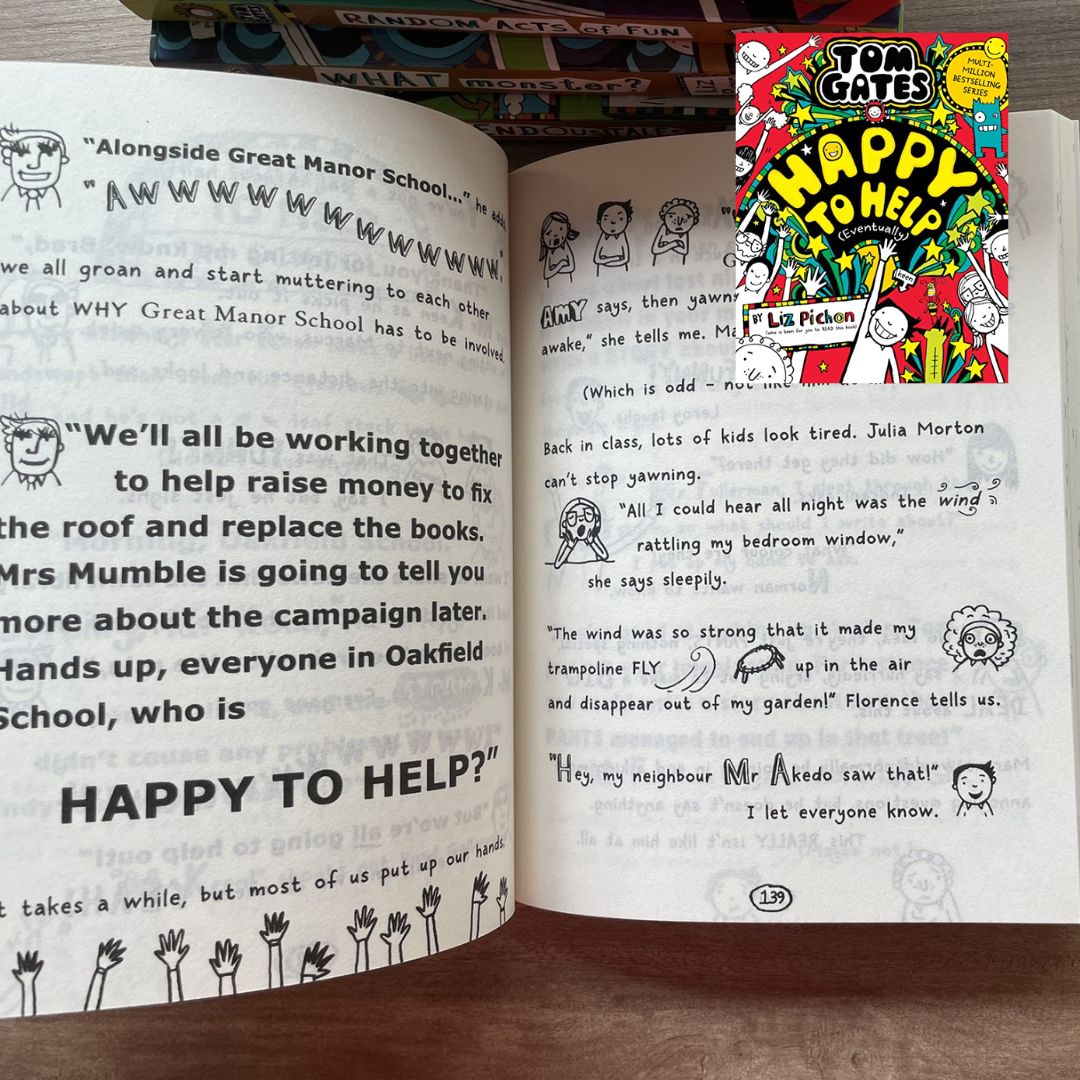 RANDOM ACTS of FUN
WHAT monster?
ENDOUS TALES
"Alongside Great Manor School..." he adds
"AWWWWWWWWWWWW."
we all groan and start muttering to each other
about WHY Great Manor School has to be involved.
"We'll all be working together
to help raise money to fix
the roof and replace the books.
Mrs Mumble is going to tell you
more about the campaign later.
Hands up, everyone in Oakfield
School, who is
HAPPY TO HELP?"
t takes a while, but most of us put up our hands.
TOM
GATES
MULTI-
MILLION
BESTSELLING
SERIES
HAPPY
TO HELP
(Eventually)
keen
BY Liz Pichon
(who is keen for you to READ this book)
AMY says, then yawn
awake," she tells me. Ma
(Which is odd – not like him
Back in class, lots of kids look tired. Julia Morton
can't stop yawning.
"All I could hear all night was the wind
rattling my bedroom window,"
she says sleepily.
"The wind was so strong that it made my
trampoline FLY up in the air
and disappear out of my garden!" Florence tells us.
"Hey, my neighbour Mr Akedo saw that!"
I let everyone know.
139